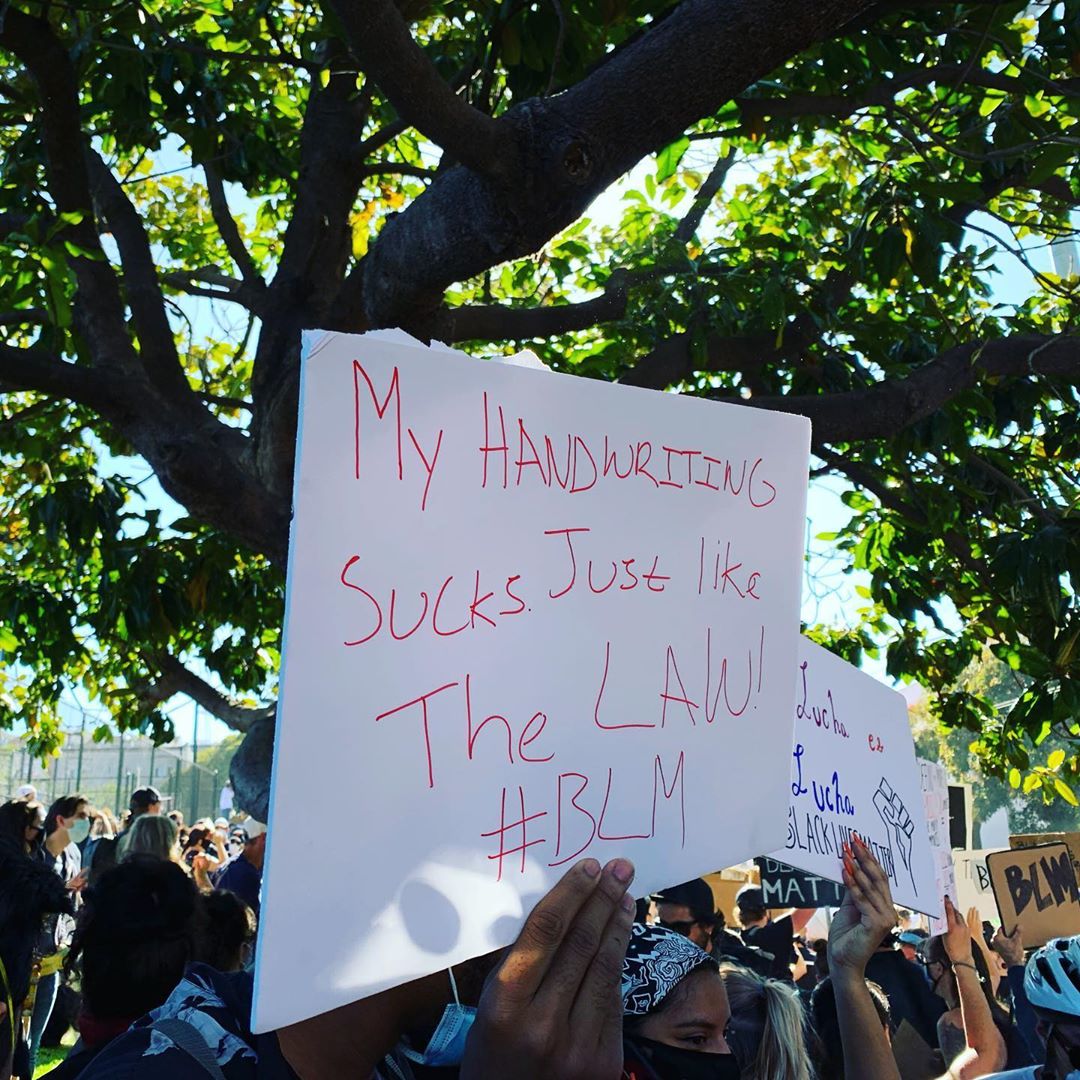 My HANDWRITING
Sucks. Just like
The LAW!
#BLM
Lucha es
Lucha
BLACK LIVES MATTER
MATT
BLM